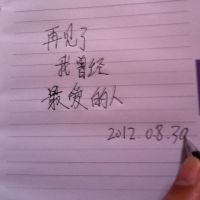 再见了
我曾经
最爱的人
2012.08.30